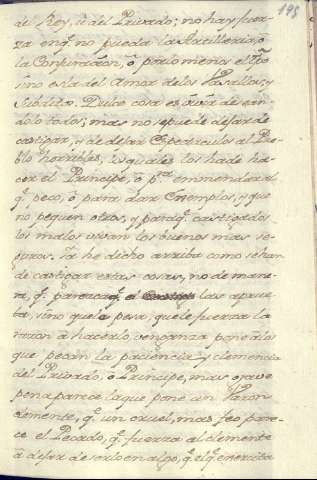 195
del Rey, ù del Privado; no hay fuer-
za enq.e no pueda la Artilleria, ò
la Conjuracion, ò p.r lo menos el tp̃o
sino es la del Amor de los Vasallos, y
Subditos. Dulce cosa es
dolo todos, mas no se puede dejar de
castigar, y de dejar Espectaculos al Pue-
blo horribles, los quales los ha de ha-
cer el Principe, ò p.a emmendar al
q.e pecò, ò para dar Exemplos, y que
no pequen otros, y paraq.e castigados
los malos vivan los buenos mas se-
guros. Ya he dicho arriba como se han
de castigar estas cosas, no de mane-
ra, q.e parezca q.e el las aprue-
ba, sino que le pesa, que le fuerza la
razon à hacerlo, venganza ponenles
que pecan la paciencia y clemencia
del Privado, ò Principe, mas grave
pena parece la que pone un Varon
clemente, q.e un cruel, mas feo pare-
ce el Pecado, q.e fuerza al clemente
à dejar de serlo en algo, q.e el q.e exercita